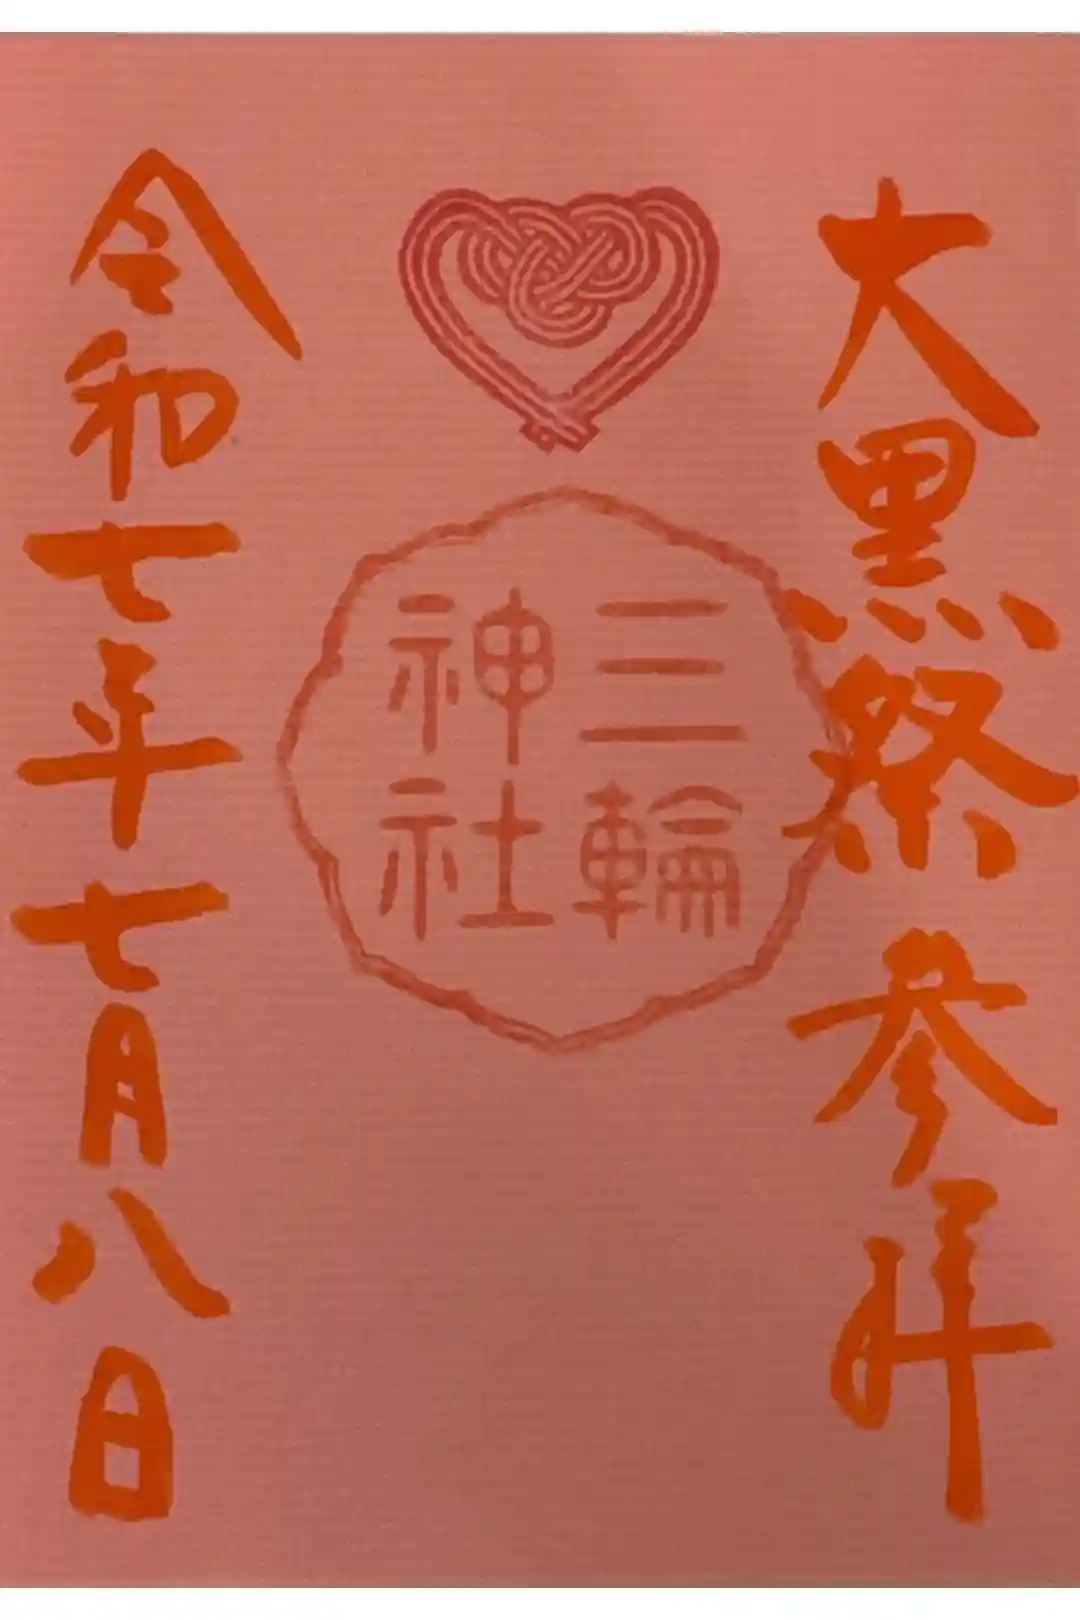 大黒祭参拝
三輪
神社
令和七年七月八日